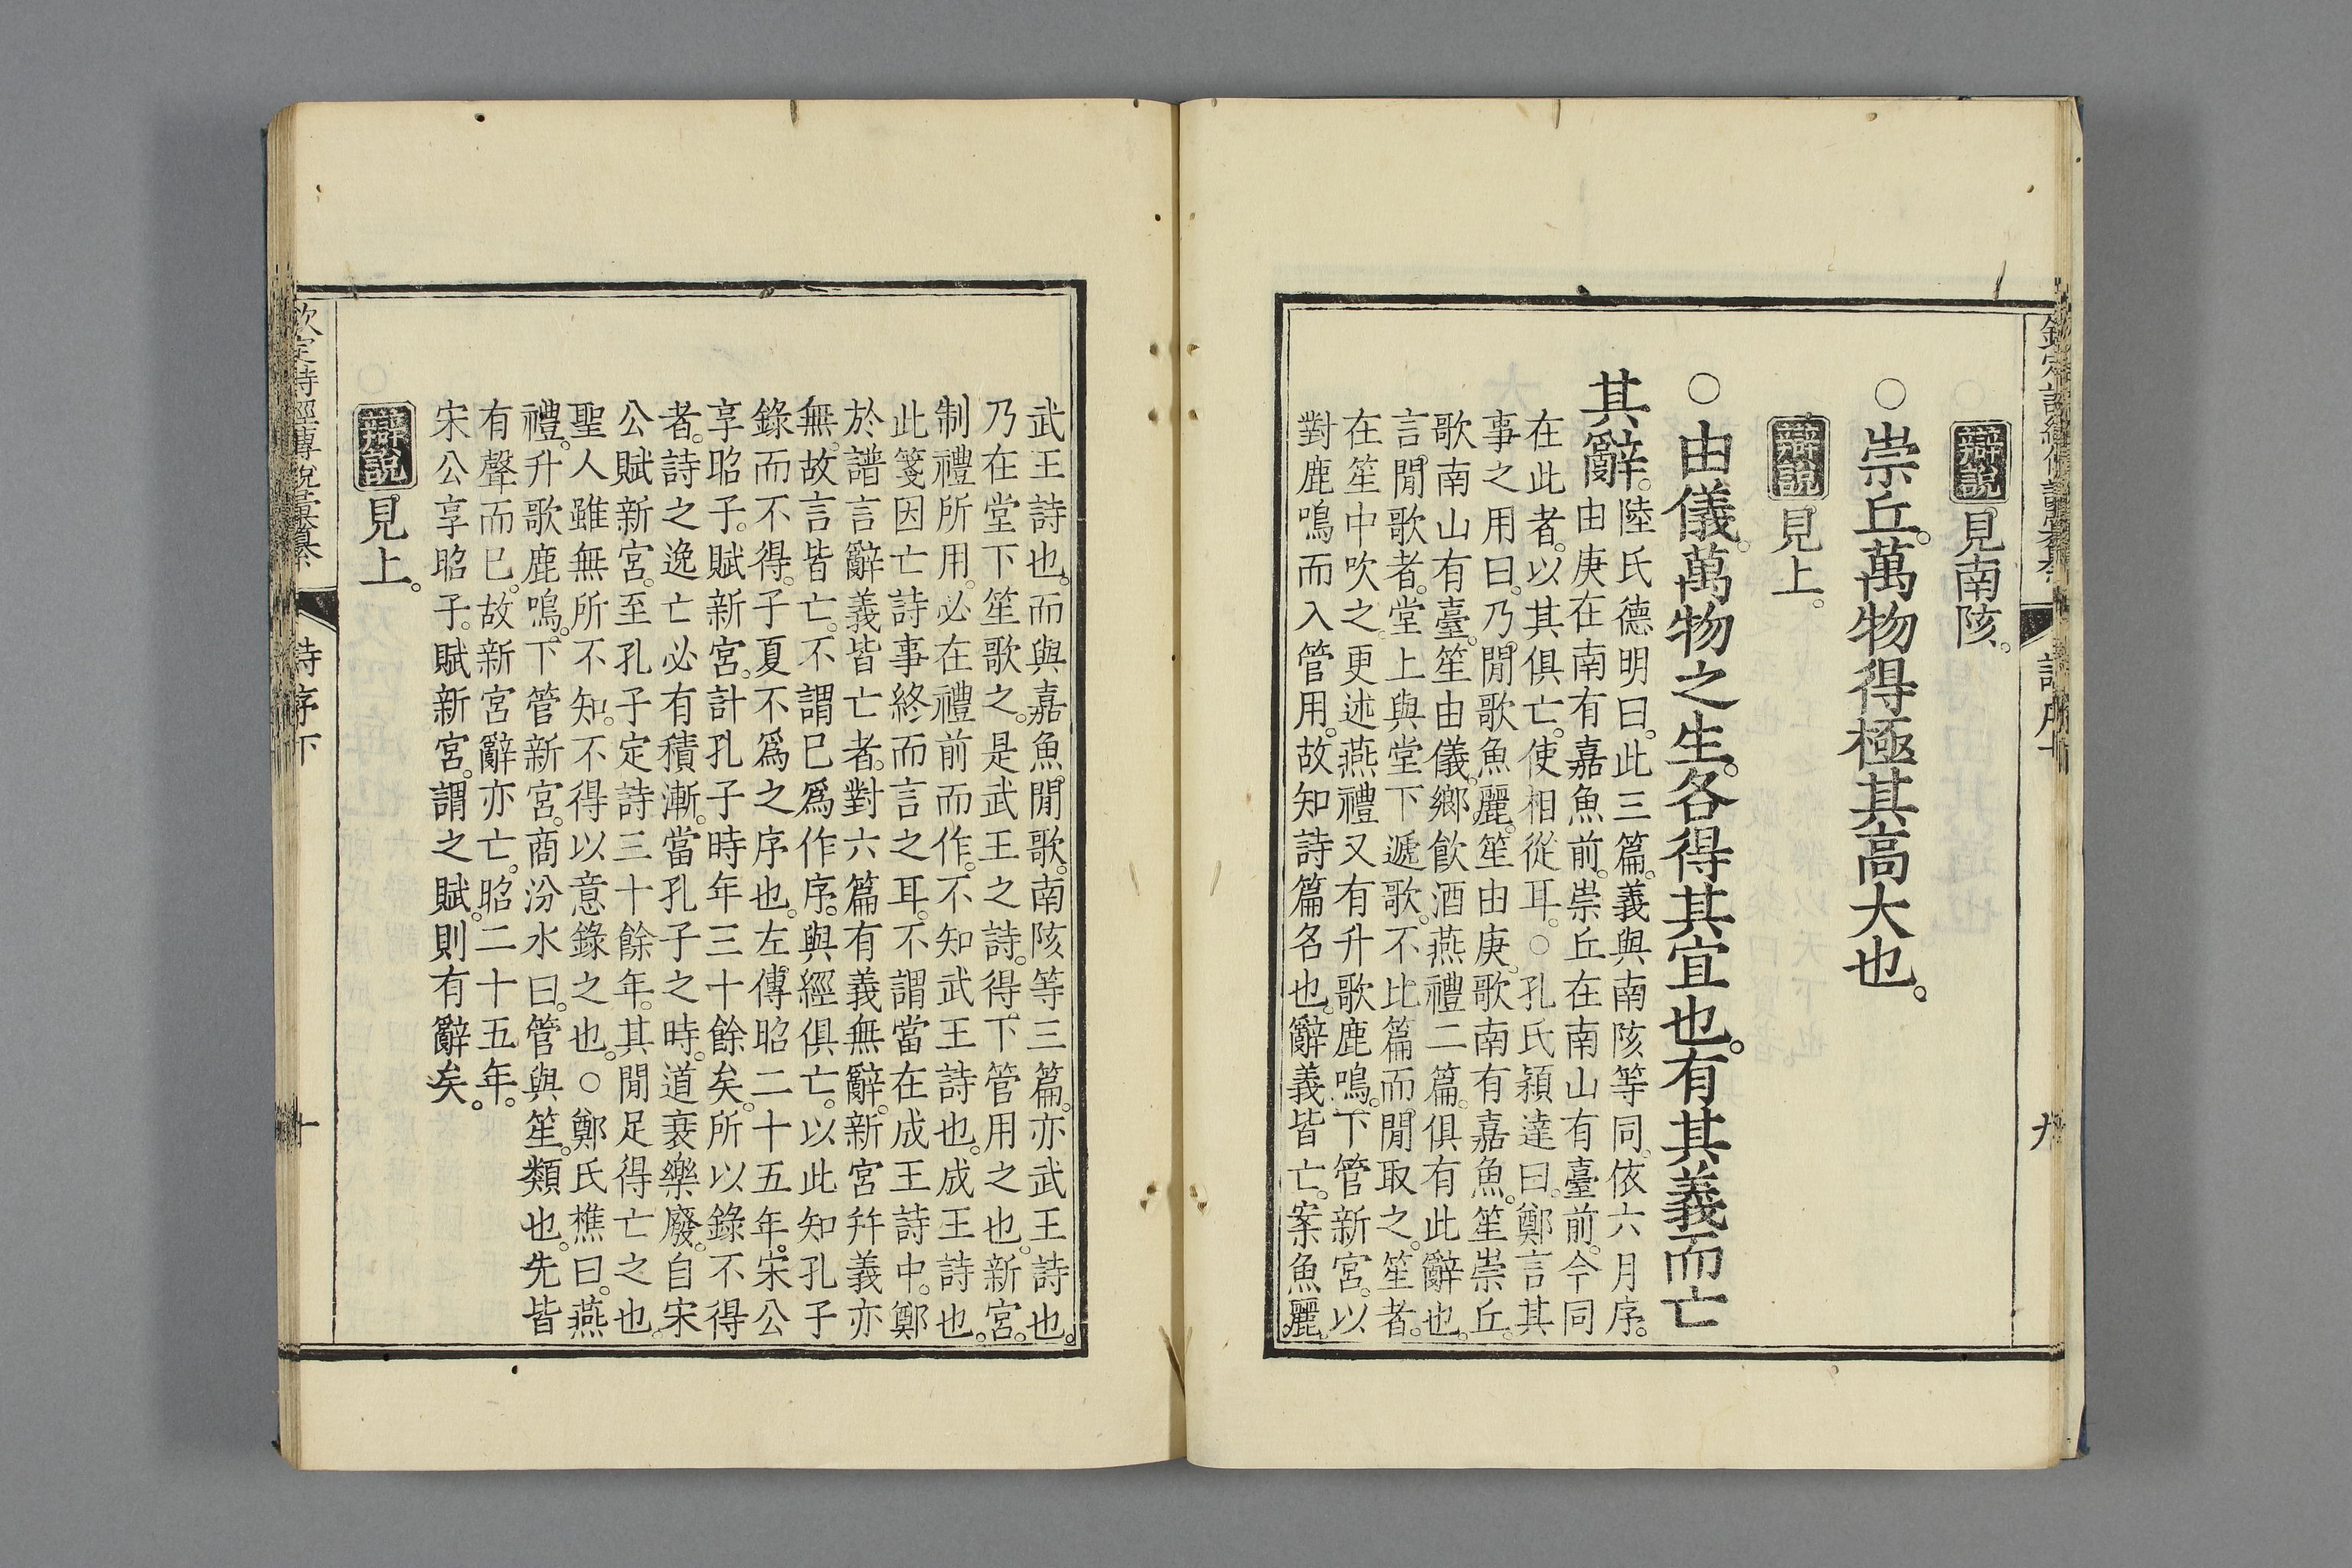 辯說見南陔。
○崇丘。萬物得極其高大也。
辯說見上。
○由儀。萬物之生。各得其宜也。有其義而亡
其辭。陸氏德明曰。此三篇。義與南陔等同。依六月序。
由庚在南有嘉魚前。崇丘在南山有臺前。今同
在此者。以其俱亡。使相從耳。○孔氏穎達曰。鄭言其
事之用曰。乃閒歌魚麗。笙由庚。歌南有嘉魚。笙崇丘。
歌南山有臺。笙由儀。鄉飲酒燕禮二篇。俱有此辭也。
言閒歌者。堂上與堂下遞歌。不比篇而閒取之。笙者。
在笙中吹之。更述燕禮又有升歌鹿鳴。下管新宮。以
對鹿鳴而入管用。故知詩篇名也。辭義皆亡。案魚麗。
九
武王詩也。而與嘉魚閒歌。南陔等三篇。亦武王詩也。
乃在堂下笙歌之。是武王之詩。得下管用之也。新宮。
制禮所用。必在禮前而作。不知武王詩也。成王詩也。
此箋因亡詩事終而言之耳。不謂當在成王詩中。鄭
於譜言辭義皆亡者。對六篇有義無辭。新宮幷義亦
無。故言皆亡。不謂已爲作序。與經俱亡。以此知孔子
錄而不得。子夏不爲之序也。左傳昭二十五年。宋公
享昭子。賦新宮。計孔子時年三十餘矣。所以錄不得
者。詩之逸亡必有積漸。當孔子之時。道衰樂廢。自宋
公賦新宮。至孔子定詩三十餘年。其閒足得亡之也。
聖人雖無所不知。不得以意錄之也。○鄭氏樵曰。燕
禮。升歌鹿鳴。下管新宮。商汾水曰。管與笙。類也。先皆
有聲而已。故新宮辭亦亡。昭二十五年。
宋公享昭子。賦新宮。謂之賦。則有辭矣。
辯說見上。
欽定詩經傳說彙纂
詩序下
十